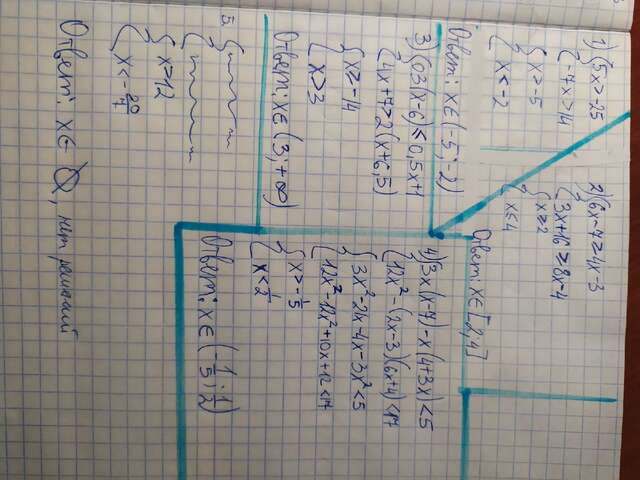 1) { 5x > -25
{ -7x > 14
{ x > -5
{ x < -2
Ответ: x∈(-5; -2)
2) { 6x-7 ≥ 4x-3
{ 3x+16 ≥ 8x-4
{ x ≥ 2
{ x ≤ 4
Ответ: x∈[2; 4]
3) { 0,3(x-6) ≤ 0,5x+1
{ 4x+7 > 2(x+6,5)
{ x ≥ -14
{ x > 3
Ответ: x∈(3; +∞)
4) { 3x(x-7)-x(4+3x) < 5
{ 12x²-(2x-3)(6x+4) < 17
{ 3x²-21x-4x-3x² < 5
{ 12x²-12x²+10x+12 < 17
{ x > -1/5
{ x < 1/2
Ответ: x∈(-1/5; 1/2)
5. {
{ x > 12
{ x < -20/7
Ответ: x∈ Ø, нет решений